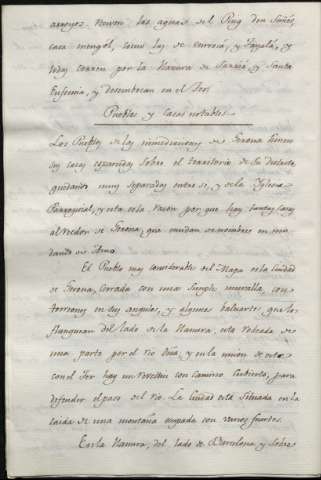 arroyos. Vienen las aguas del Puig den
casa mengol, como las de y
todas corren por la llanura de Sarriá y Santa
Eufemia, y desembocan en el Ter.
Pueblos y Casas notables
Los Pueblos de las inmediaciones de Gerona tienen
sus casas esparcidas sobre el territorio de su distrito,
quedando muy separadas entre si, y de la Yglesia
Parroquial, y esta es la razon por que hay tantas casas
al rededor de Gerona, que mudan de nombres en mu-
dando de Amo.
El Pueblo mas considerable del Mapa es la ciudad
de Gerona, cerrada con una simple muralla, con
torreones en sus angulos, y algunos baluartes, que la
flanquean del lado de la llanura, esta rodeada de
una parte por el rio Oña, y en la union de este
con el Ter hay un revellin con camino cubierto, para
defender el paso del rio. La ciudad está situada en la
caida de una montaña ocupada con varios fuertes.
En la llanura, del lado de Barcelona, y sobre